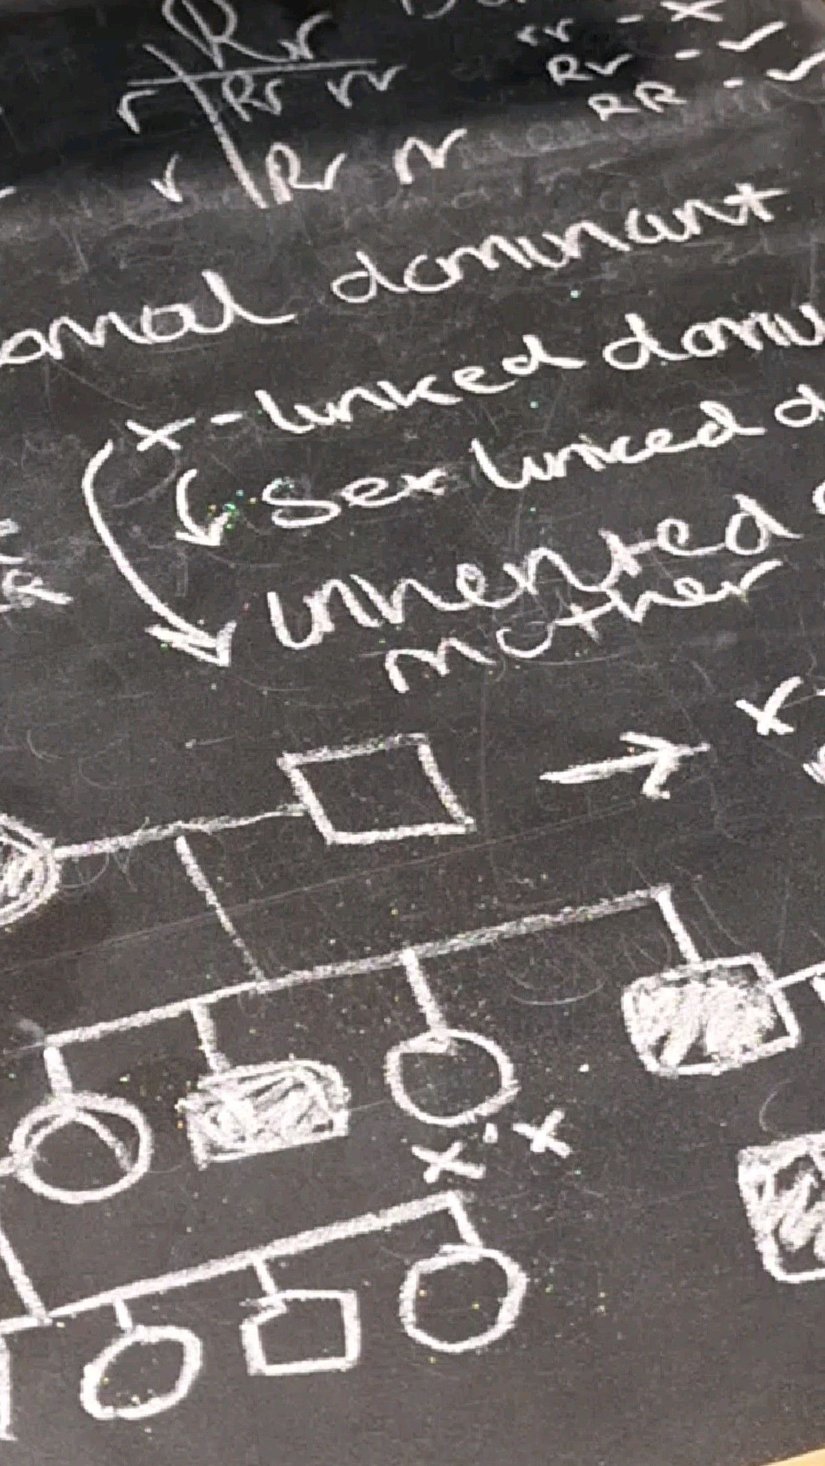 Rr
r Rr rr
r Rr rr
rr - x
Rr - ✓
RR - ✓
omal dominant
x-linked domin
Sex linked d
inherited
mother
x-
x'x